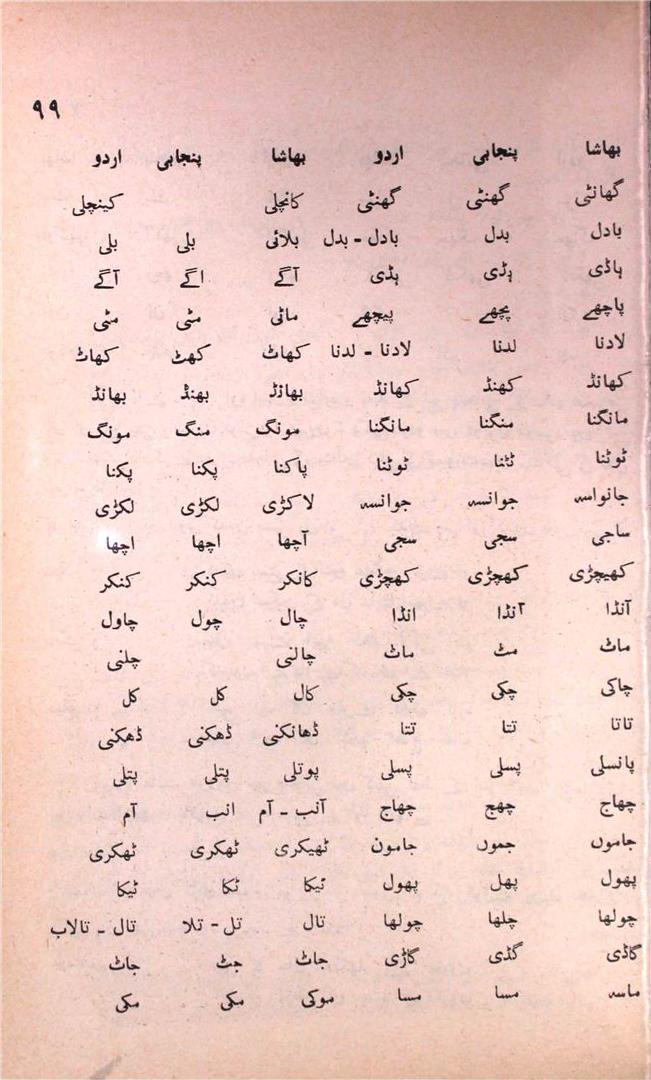 ۹۹
بھاشا پنجابی اردو بھاشا پنجابی اردو
گھانٹی گھنٹی گھنٹی کانچلی کینچلی
بادل بدل بادل - بدل بلائی بلی بلی
ہاڈی ہڈی ہڈی آگے اگے آگے
پاچھے پچھے پیچھے ماٹی مٹی مٹی
لادنا لدنا لادنا - لدنا کھاٹ کھٹ کھاٹ
کھانڈ کھنڈ کھانڈ بھانڈ بھنڈ بھانڈ
مانگنا منگنا مانگنا مونگ منگ مونگ
ٹوٹنا ٹٹنا ٹوٹنا پاکنا پکنا پکنا
جانواسہ جوانسہ جوانسہ لاکڑی لکڑی لکڑی
ساجی سجی سجی آچھا اچھا اچھا
کھیچڑی کھچڑی کھچڑی کانکر کنکر کنکر
آنڈا آنڈا انڈا چال چول چاول
ماٹ مٹ ماٹ چالنی چلنی
چاکی چکی چکی کال کل کل
تاتا تتا تتا ڈھانکنی ڈھکنی ڈھکنی
پانسلی پسلی پسلی پوتلی پتلی پتلی
چھاج چھج چھاج آنب - آم انب آم
جاموں جموں جامون ٹھیکری ٹھکری ٹھکری
پھول پھل پھول ٹیکا ٹکا ٹیکا
چولھا چلھا چولھا تال تل - تلا تال - تالاب
گاڈی گڈی گاڑی جاٹ جٹ جاٹ
ماسہ مسا مسا موکی مکی مکی